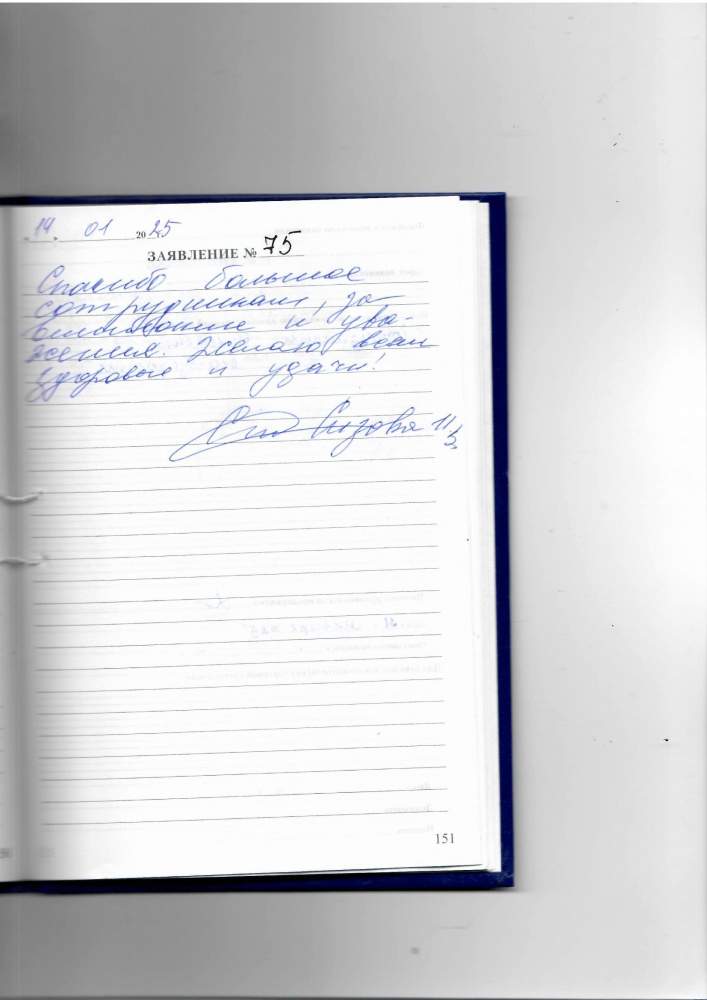 14. 01 2025
ЗАЯВЛЕНИЕ № 75
Спасибо большое
сотрудникам, за
внимание и ува-
жения. Желаю всем
здоровье и удачи!
Сизова
151